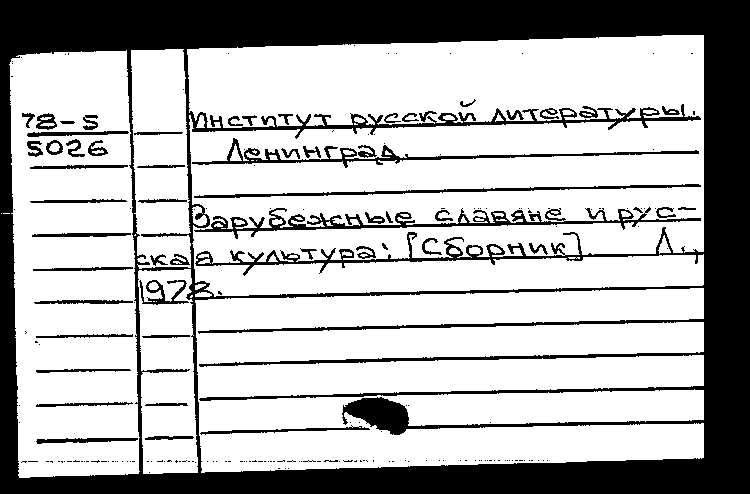 78-5 Институт русской литературы.
5026 Ленинград.
Зарубежные славяне и рус-
ская культура: [Сборник]. Л.,
1978.